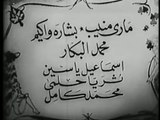 ماري منيب - بشاره واكيم
محمد البكار
اسماعيل ياسين
ثريا حلمى
محمد كامل